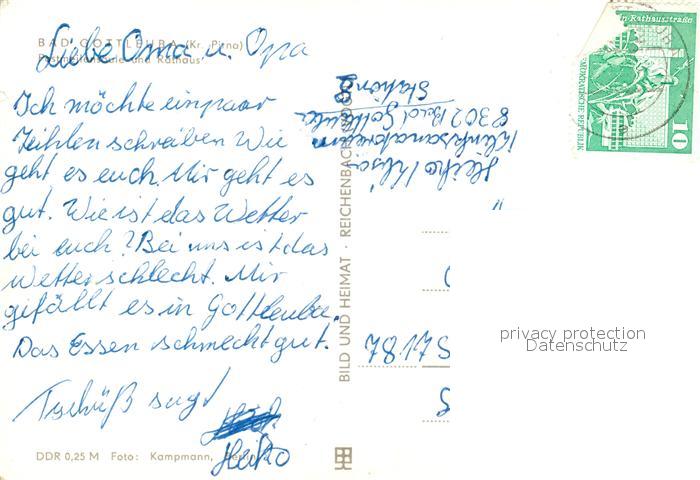 BAD GOTTLEUBA (Kr. Pirna)
Postmeilensäule und Rathaus
Liebe Oma u. Opa
Ich möchte ein paar
Zeihlen schreiben Wie
geht es euch. Mir geht es
gut. Wie ist das Wetter
bei euch? Bei uns ist das
Wetter schlecht. Mir
gefällt es in Gottleuba.
Das Essen schmeckt gut.
Tschüß sagt
Heiko
DDR 0,25 M Foto: Kampmann, Berlin
BILD UND HEIMAT · REICHENBACH
Heiko
Kliniksanatorium
8302 Bad Gottleuba
Station
n Rathausstraße
DEMOKRATISCHE REPUBLIK
10
privacy protection
Datenschutz